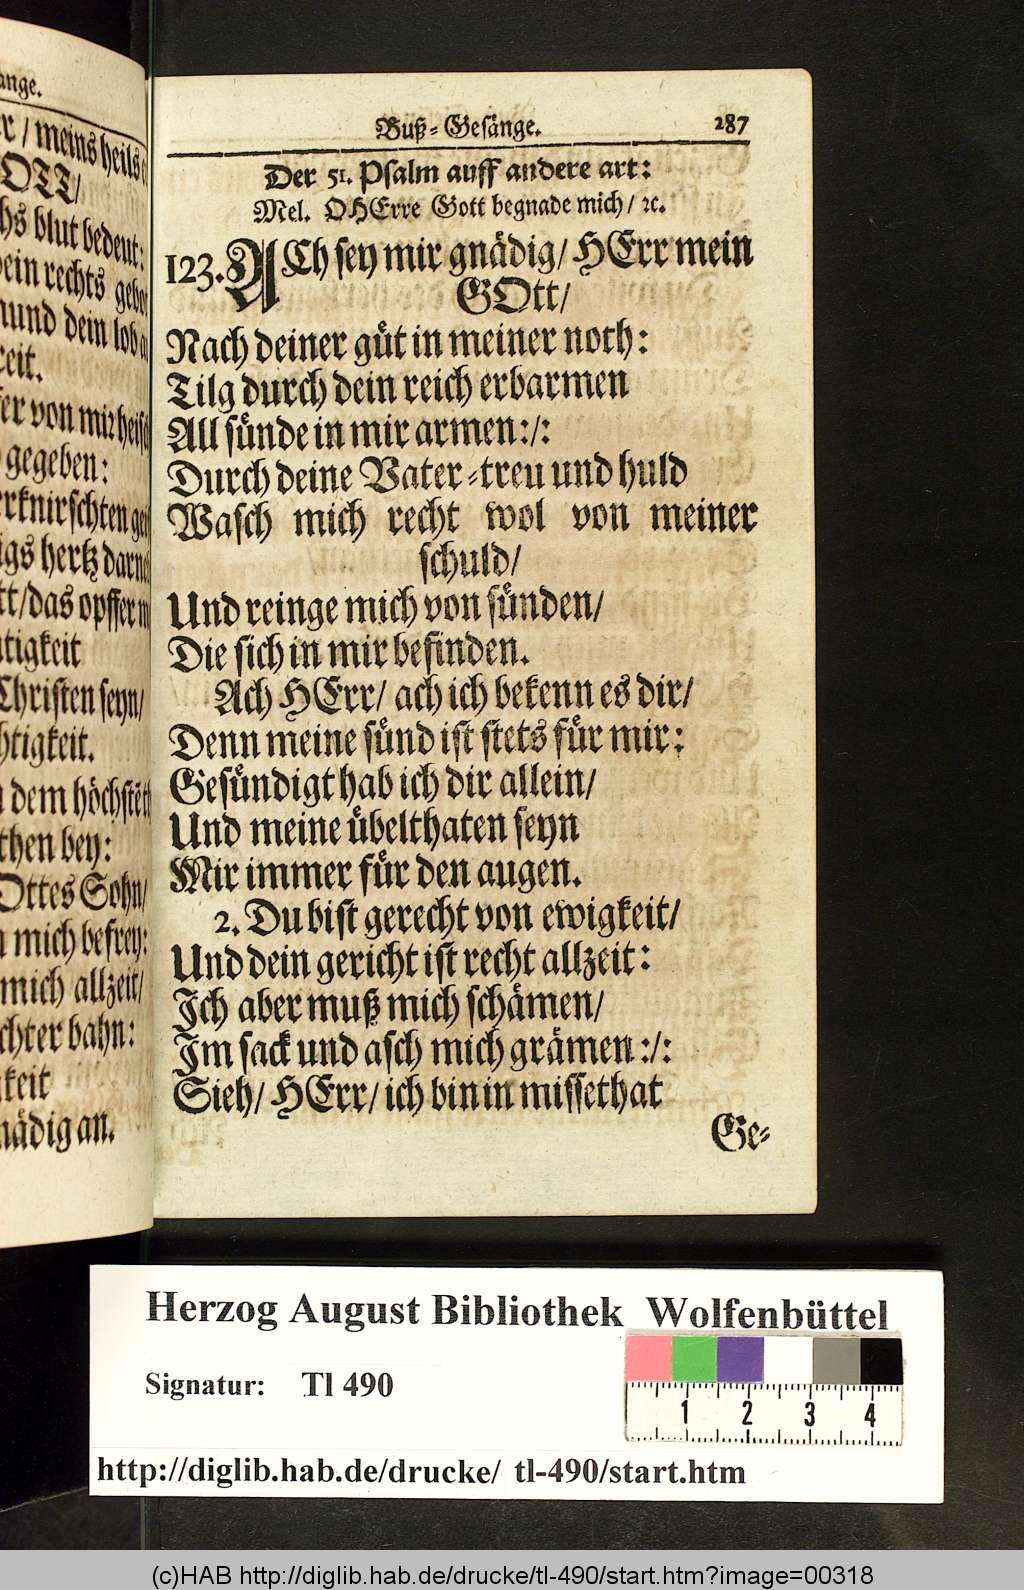 ange.
/ meins heils
OTT/
blut bedeut:
rechts
und dein lob
von mir
gegeben:
hertz
/das opffer
Christen seyn/
dem höchsten
bey:
Ottes Sohn/
mich befrey:
mich allzeit/
bahn:
an.
Buß-Gesänge. 287
Der 51. Psalm auff andere art:
Mel. O HErre Gott begnade mich/ ꝛc.
123. ACh sey mir gnädig/ HErr mein
GOtt/
Nach deiner güt in meiner noth:
Tilg durch dein reich erbarmen
All sünde in mir armen:/:
Durch deine Vater-treu und huld
Wasch mich recht wol von meiner
schuld/
Und reinge mich von sünden/
Die sich in mir befinden.
Ach HErr/ ach ich bekenn es dir/
Denn meine sünd ist stets für mir:
Gesündigt hab ich dir allein/
Und meine übelthaten seyn
Mir immer für den augen.
2. Du bist gerecht von ewigkeit/
Und dein gericht ist recht allzeit:
Ich aber muß mich schämen/
Im sack und asch mich grämen:/:
Sieh/ HErr/ ich bin in missethat
Ge-
Herzog August Bibliothek Wolfenbüttel
Signatur: Tl 490
1 2 3 4
http://diglib.hab.de/drucke/ tl-490/start.htm
(c)HAB http://diglib.hab.de/drucke/tl-490/start.htm?image=00318